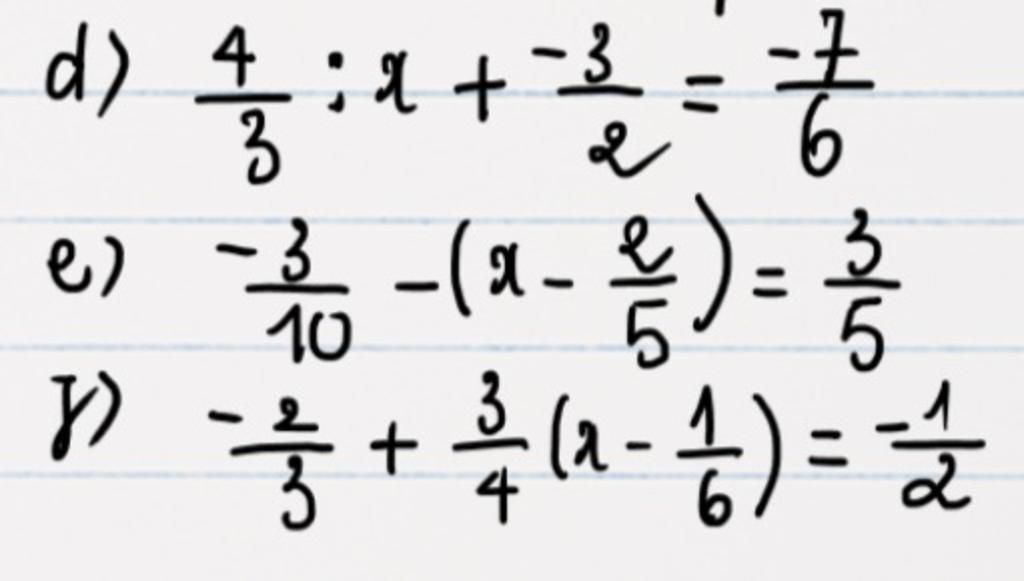 d) 4/3 : x + -3/2 = -7/6
e) -3/10 - (x - 2/5) = 3/5
f) -2/3 + 3/4 (x - 1/6) = -1/2